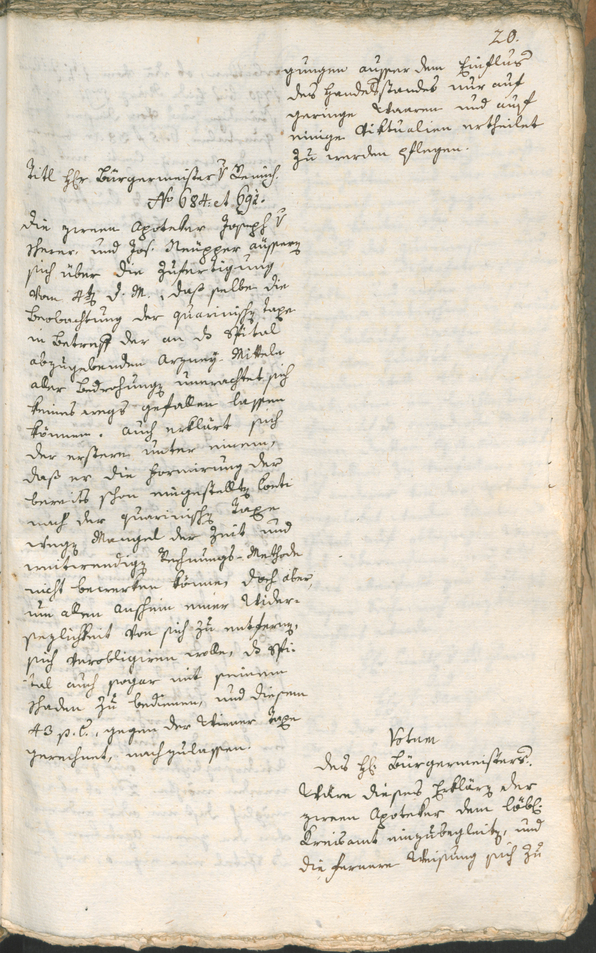 20.
gungen ausser dem Einflus
des Handelsstandes nur auf
geringe Waaren und auf
einige Viktualien ertheilet
zu werden pflegen.
Titl Hr Bürgermeister v
No 684. et 691.
Die zween Apoteker Joseph v
Scherer, und Jos. Neupper äussern
sich über die Zufertigung
vom d. M., daß selbe die
Beobachtung der quarinischen Taxe
in Betreff der an das Spital
abzugebenden Arzney-Mitteln
aller Bedrohung unerachtet sich
keineswegs gefallen lassen
können. Auch erklärt sich
der erstere unter einem,
daß er die Formirung der
bereits schon eingestellten Conti
nach der quarinischen Taxe
wegen Mangel der Zeit und
Rechnungs-Methode
nicht bewerken könne, doch aber,
um allen Anschein einer Wider-
sezlichkeit von sich zu entfernen,
sich verobligiren wolle, das Spi-
tal auch sogar mit seinem
Schaden zu bedienen, und diesem
43 p. C., gegen der Wiener Taxe
gerechnet, nachzulassen.
Votum
des H. Bürgermeisters.
Wäre dieses Erklären der
zween Apoteker dem löbl.
Kreisamt einzubegleiten, und
die fernere Weisung sich zu